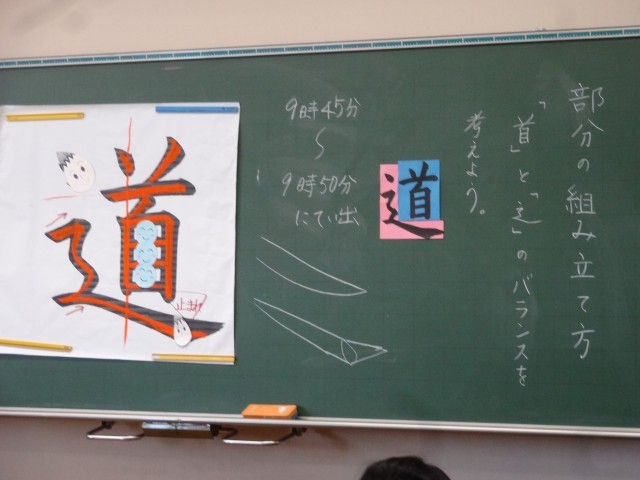 部分の組み立て方
「首」と「辶」のバランスを
考えよう。
道
9時45分
〜
9時50分
にてい出
道